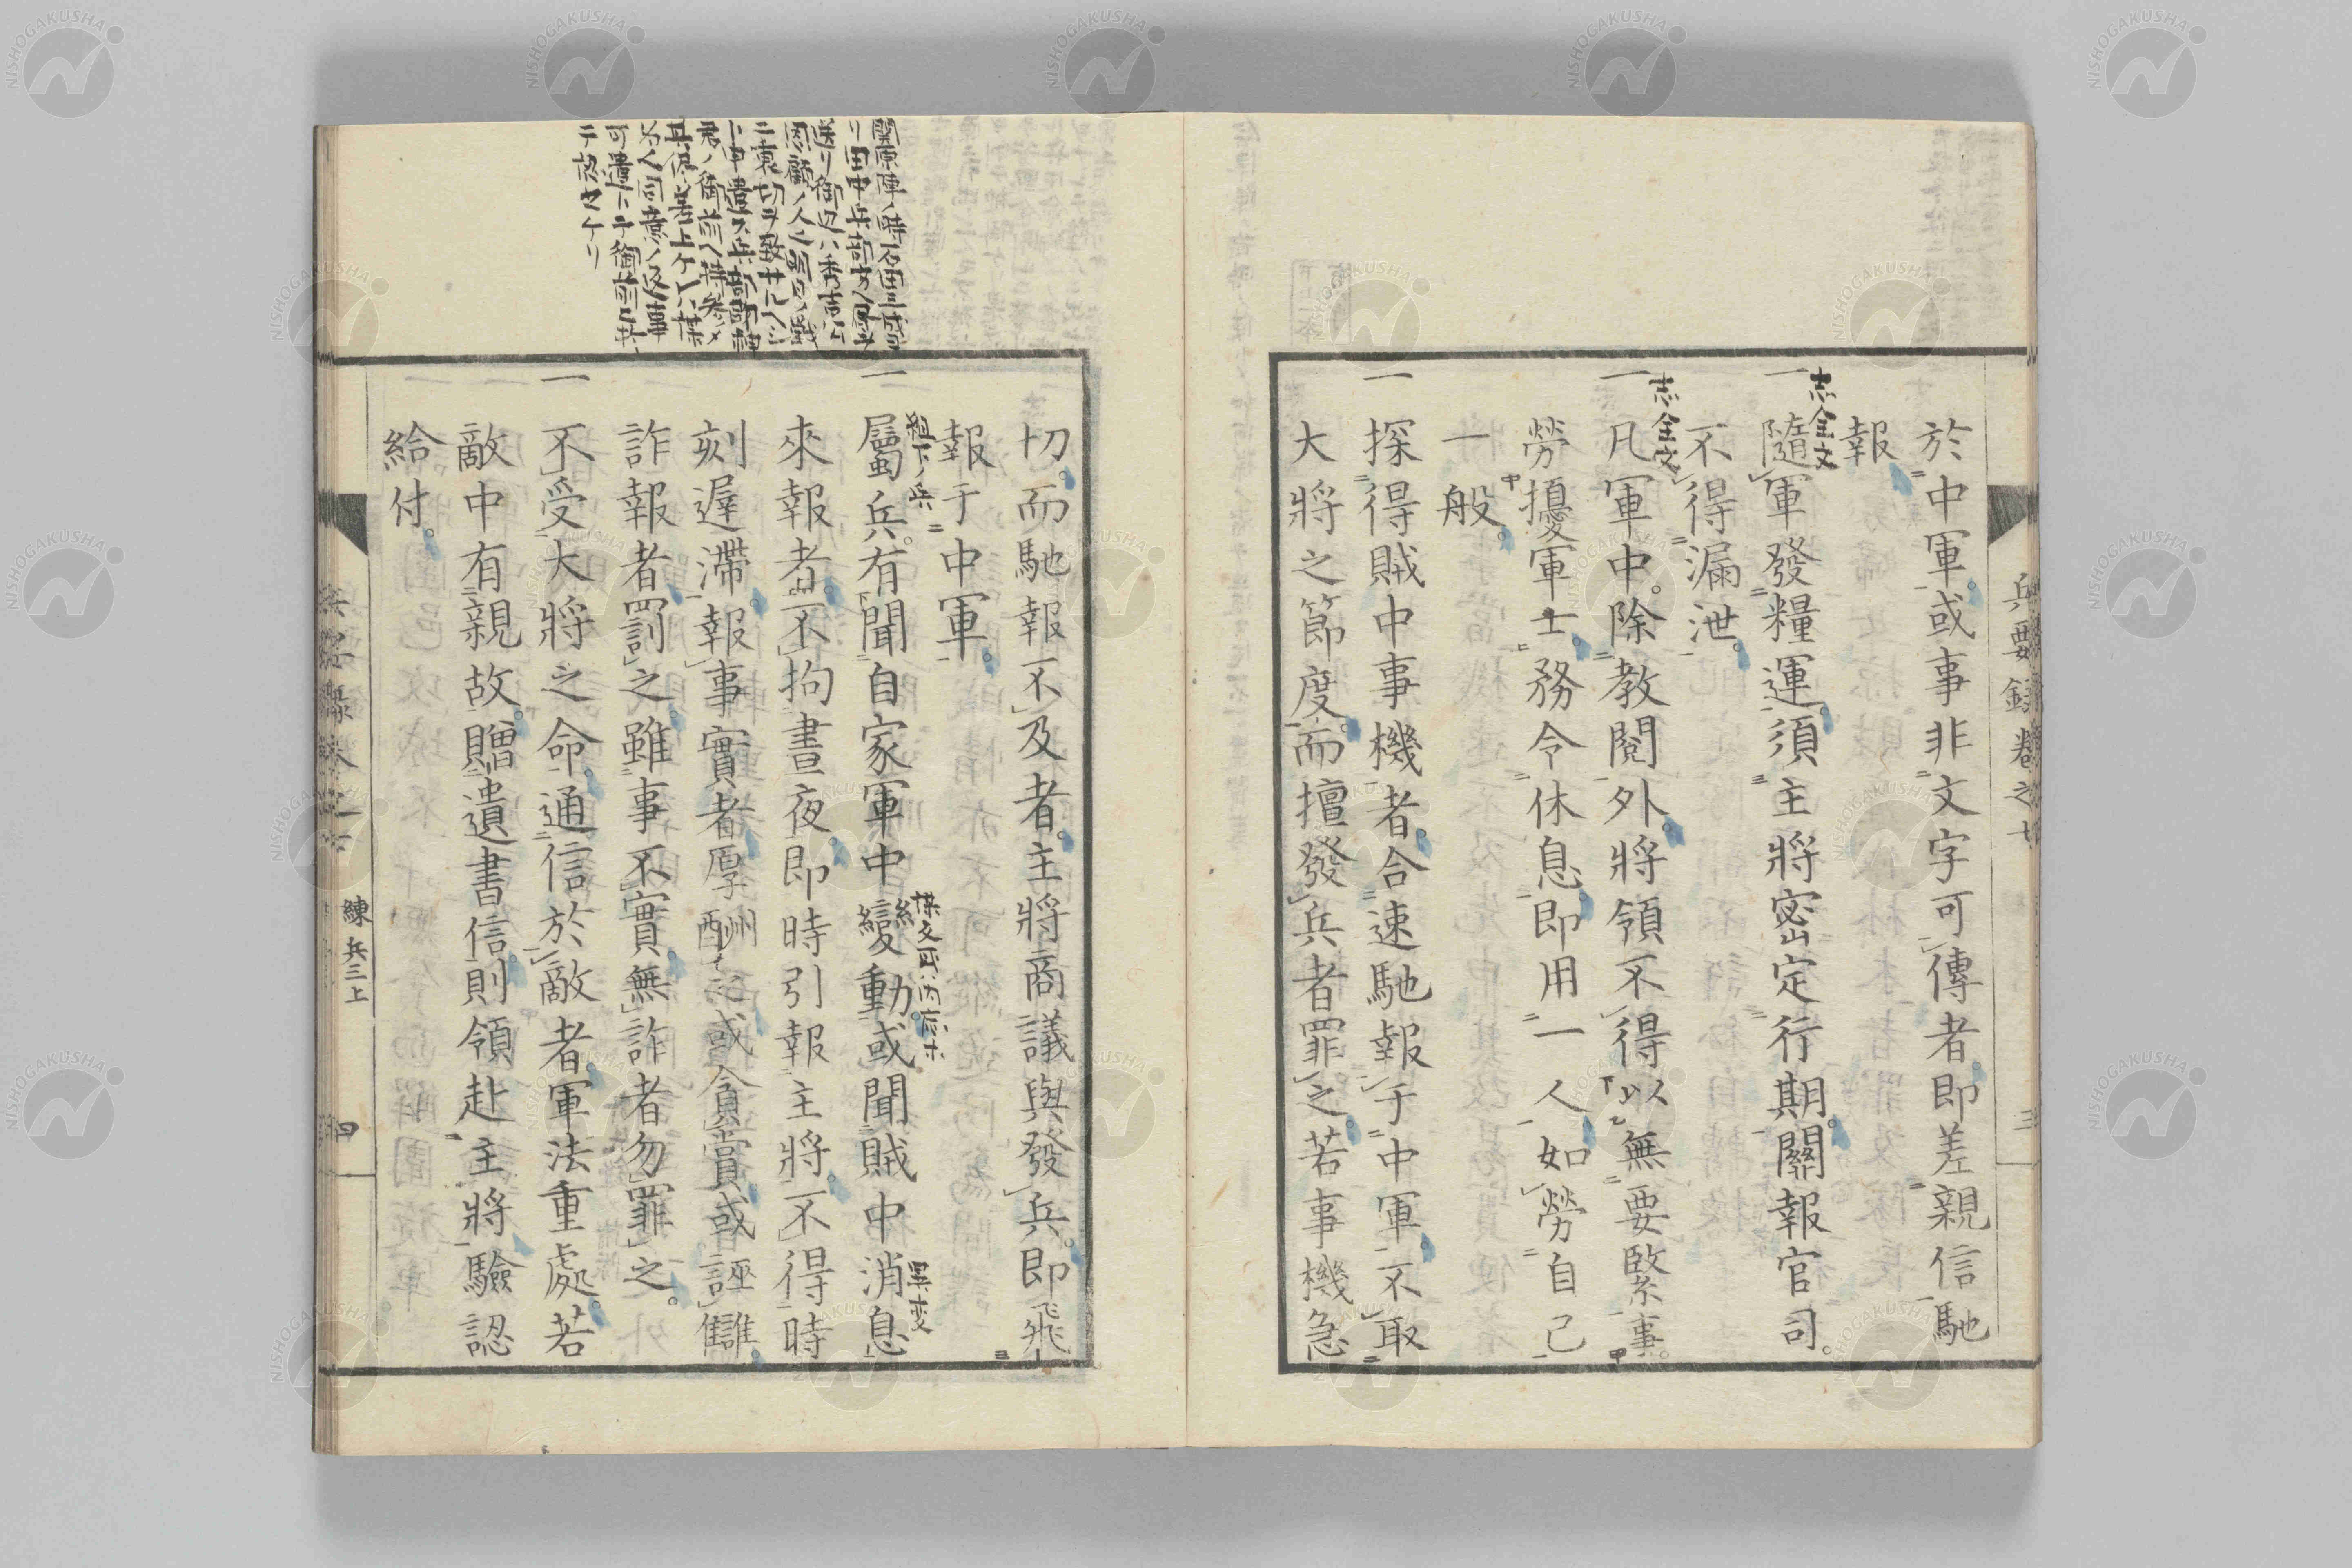 兵要錄卷之七
三
於中軍。或事非文字可傳者。即差親信馳
報
志全文
一隨軍發糧運。須主將密定行期。關報官司。
不得漏泄。
志全文
一凡軍中。除教閱外。將領不得以無要緊事。
勞擾軍士。務令休息。即用一人。如勞自己
一般。
一探得賊中事機者。合速馳報于中軍。不取
大將之節度。而擅發兵者罪之。若事機急
切。而馳報不及者。主將商議與發兵。即飛
報于中軍。
組下ノ兵
一屬兵。有聞自家軍中變動。或聞賊中消息
異変
來報者。不拘晝夜。即時引報主將。不得時
刻遲滯。報事實者。厚酬 或貪賞。或誣讎。
詐報者。罰之。雖事不實。無詐者勿罪之。
一不受大將之命。通信於敵者。軍法重處。若
敵中有親故。贈遺書信。則領赴主將驗認
給付。
練兵三上
四
関原陣ノ時石田三成
リ田中兵部方
送リ御辺ハ秀吉公
恩顧ノ人
ニ裏切ヲ致サル
ト申遣ス兵部
君ノ御前へ持参
其侭差上ケ
同意ノ返事
可遣トテ御前ニ
テ認セケリ
NISHOGAKUSHA